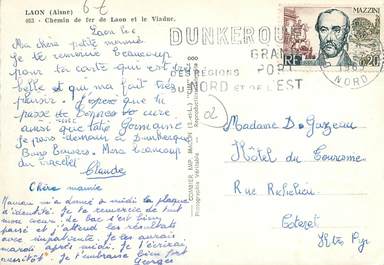 LAON (Aisne)
463 - Chemin de fer de Laon et le Viaduc.
Laon le
Ma chère petite mamie
je te remercie beaucoup
pour ta carte qui est très
belle et qui m'a fait très
plaisir. J'espère que tu
passe de bonne cure
ainsi que tatie Germaine
Je pars demain à Dunkerque
Bons Baisers. Merci beaucoup
du
Claude
Chère mamie
Maman m'a donné à midi la plaque
d'identité. Je te remercie de tout
mon cœur. Le bac s'est bien
passé et j'attend les résultats
avec impatience. Je les aurais
mardi après midi. Je t'écrirai
aussitôt. Je t'embrasse bien fort
Georges
COMBIER IMP. MACON (S.-et-L.)
Photographie véritable - Reproduction
DUNKERQUE
GRAND
PORT
DES RÉGIONS
DU NORD ET DE L'EST
NORD
MAZZINI
RF
0,20
Madame D. Gazeau
Hôtel du Tourisme
Rue Richelieu
Cauterets
Htes Pyr